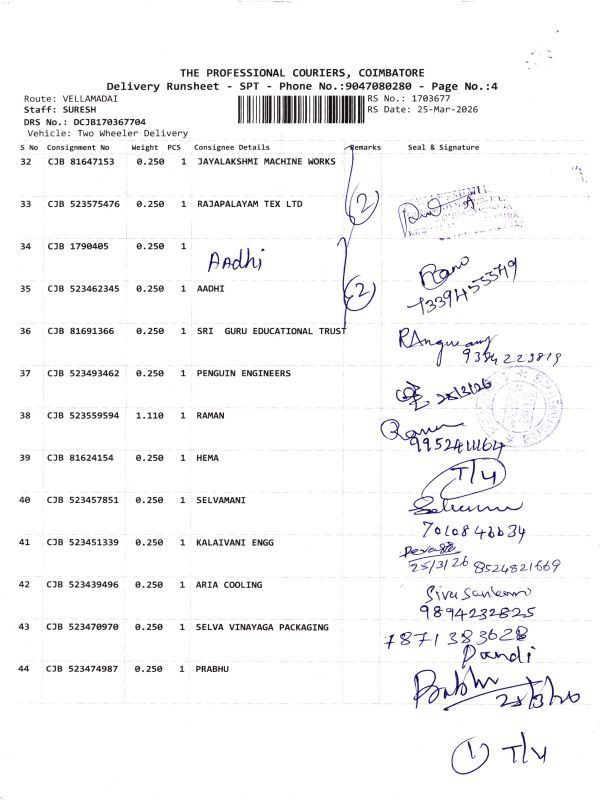 THE PROFESSIONAL COURIERS, COIMBATORE
Delivery Runsheet - SPT - Phone No.:9047080280 - Page No.:4
Route: VELLAMADAI RS No.: 1703677
Staff: SURESH RS Date: 25-Mar-2026
DRS No.: DCJB170367704
Vehicle: Two Wheeler Delivery
S No Consignment No Weight PCS Consignee Details Remarks Seal & Signature
32 CJB 81647153 0.250 1 JAYALAKSHMI MACHINE WORKS
33 CJB 523575476 0.250 1 RAJAPALAYAM TEX LTD (2)
34 CJB 1790405 0.250 1
AAdhi
35 CJB 523462345 0.250 1 AADHI (2)
36 CJB 81691366 0.250 1 SRI GURU EDUCATIONAL TRUST
9384223819
37 CJB 523493462 0.250 1 PENGUIN ENGINEERS
25/3/26
38 CJB 523559594 1.110 1 RAMAN
39 CJB 81624154 0.250 1 HEMA T/4
40 CJB 523457851 0.250 1 SELVAMANI
41 CJB 523451339 0.250 1 KALAIVANI ENGG
25/3/26 8524821669
42 CJB 523439496 0.250 1 ARIA COOLING
9894232825
43 CJB 523470970 0.250 1 SELVA VINAYAGA PACKAGING 7871383628
Pandi
44 CJB 523474987 0.250 1 PRABHU Prabhu
25/3/26
(1) T/4